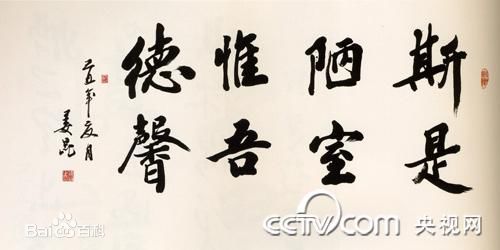 斯是
陋室
惟吾
德馨
五年夏月
姜昆
Bai 百科
cctv.com 央视网